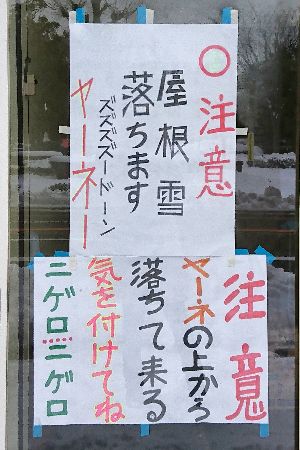 ○注意
屋根雪
落ちます
ズズズズードーン
ヤーネー
注意
ヤーネの上から
落ちて来る
気を付けてね
ニゲロニゲロ